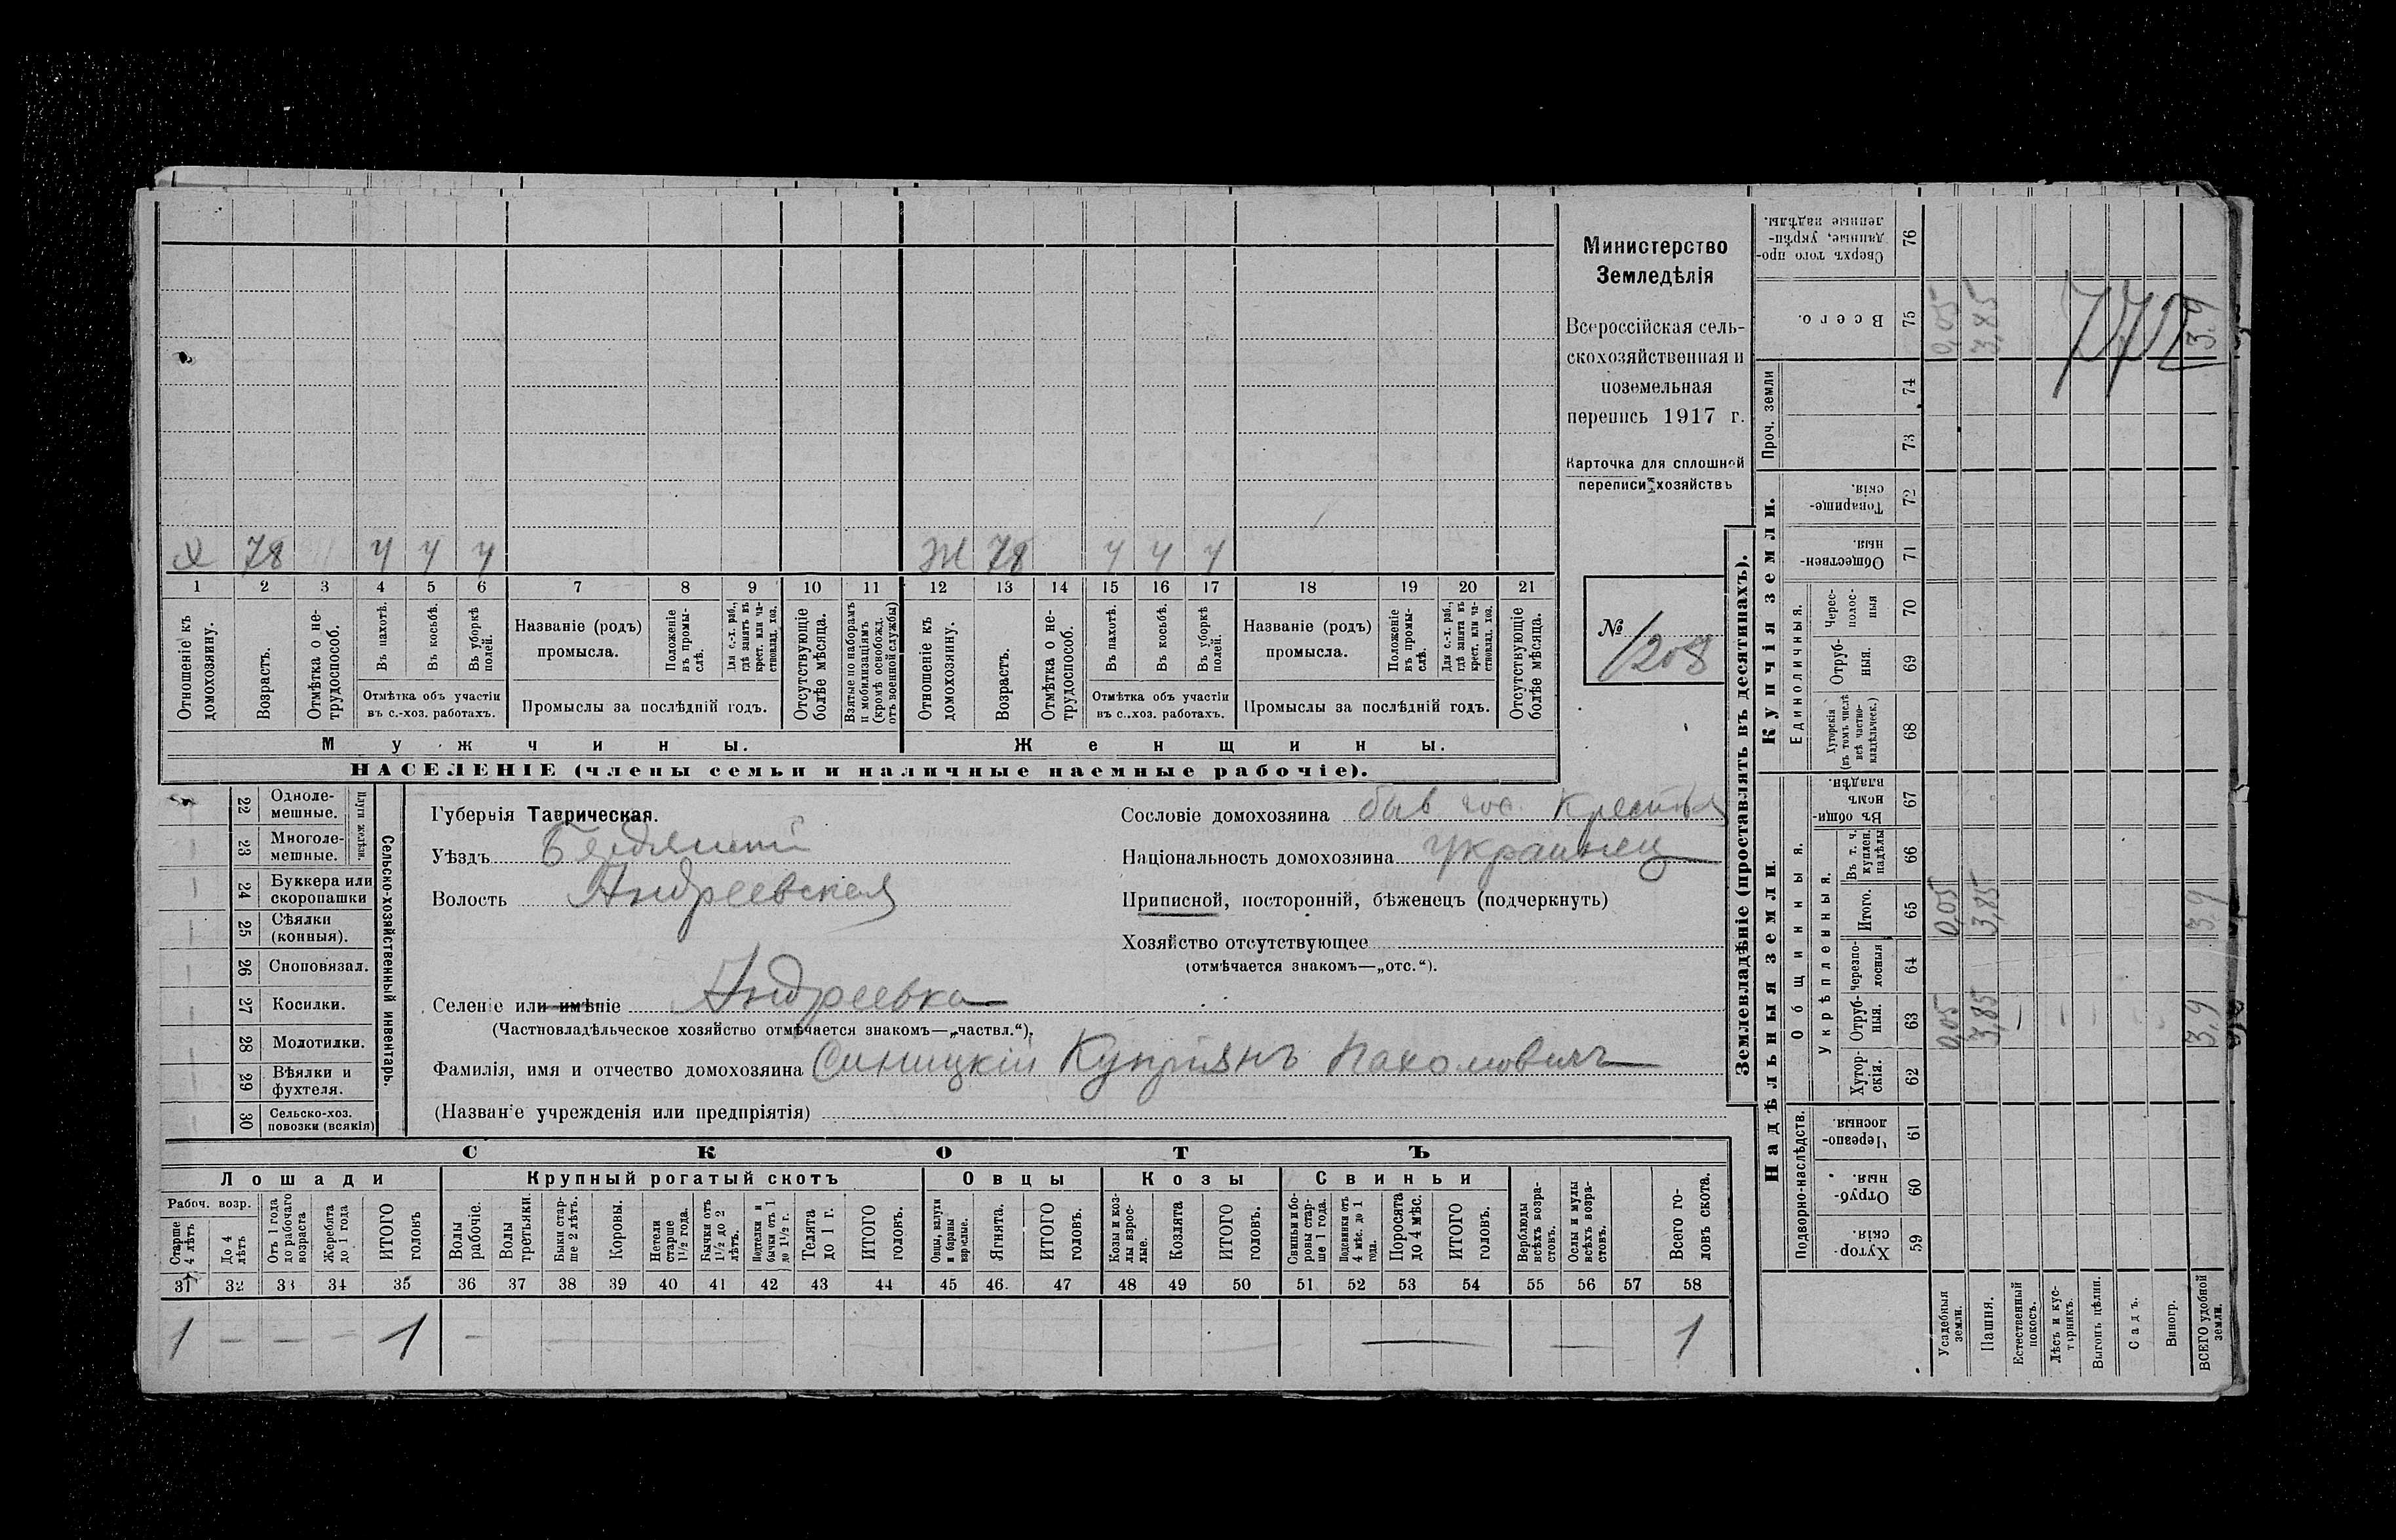 Министерство
Земледѣлія
Всероссійская сель-
скохозяйственная и
поземельная
перепись 1917 г.
Карточка для сплошной
переписи хозяйствъ
№ 1208
Х 78 ч ч ч Ж 78 ч ч ч
1 2 3 4 5 6 7 8 9 10 11 12 13 14 15 16 17 18 19 20 21
Отношеніе къ домохозяину.
Возрастъ.
Отмѣтка о не-трудоспособ.
Въ пахотѣ.
Въ косьбѣ.
Въ уборкѣ полей.
Отмѣтка объ участіи
въ с.-хоз. работахъ.
Названіе (родъ)
промысла.
Положеніе въ промы-слѣ.
Для с.-х. раб., гдѣ занятъ въ крест. или ча-ствовлад. хоз.
Промыслы за послѣдній годъ.
Отсутствующіе болѣе мѣсяца.
Взятые по наборамъ и мобилизаціямъ (кромѣ освобожд. отъ военной службы)
Отношеніе къ домохозяину.
Возрастъ.
Отмѣтка о не-трудоспособ.
Въ пахотѣ.
Въ косьбѣ.
Въ уборкѣ полей.
Отмѣтка объ участіи
въ с..хоз. работахъ.
Названіе (родъ)
промысла.
Положеніе въ промы-слѣ.
Для с.-х. раб., гдѣ занята въ крест. или ча-ствовлад. хоз.
Промыслы за послѣдній годъ.
Отсутствующіе болѣе мѣсяца.
Мужчины. Женщины.
НАСЕЛЕНІЕ (члены семьи и наличные наемные рабочіе).
Сельско-хозяйственный инвентарь.
Плуги желѣзн.
22 Одноле-мешные.
23 Многоле-мешные.
24 Буккера или скоропашки
25 Сѣялки (конныя).
26 Сноповязал.
27 Косилки.
28 Молотилки.
29 Вѣялки и фухтеля.
30 Сельско-хоз. повозки (всякія)
Губернія Таврическая.
Уѣздъ Бердянскій
Волость Андреевская
Селеніе или имѣніе Андреевка
(Частновладѣльческое хозяйство отмѣчается знакомъ—„частвл.“).
Фамилія, имя и отчество домохозяина Синицкій Купріянъ Пахомовичъ
(Названіе учрежденія или предпріятія)
Сословіе домохозяина быв гос. Крестья
Національность домохозяина украинец
Приписной, посторонній, бѣженецъ (подчеркнуть)
Хозяйство отсутствующее
(отмѣчается знакомъ—„отс.“).
СКОТЪ
Лошади Крупный рогатый скотъ Овцы Козы Свиньи
Рабоч. возр.
Старше 4 лѣтъ
До 4 лѣтъ
Отъ 1 года до рабочаго возраста
Жеребята до 1 года
ИТОГО головъ
Волы рабочіе.
Волы третьяки.
Быки стар-ше 2 лѣтъ.
Коровы.
Нетели старше 1½ года.
Бычки отъ 1½ до 2 лѣтъ.
Подтелки и бычки отъ 1 до 1½ г.
Телята до 1 г.
ИТОГО головъ.
Овцы, валухи и бараны взрослые.
Ягнята.
ИТОГО головъ.
Козы и коз-лы взрос-лые.
Козлята
ИТОГО головъ.
Свиньи и бо-ровы стар-ше 1 года.
Подсвинки отъ 4 мѣс. до 1 года.
Поросята до 4 мѣс.
ИТОГО головъ.
Верблюды всѣхъ возра-стовъ.
Ослы и мулы всѣхъ возра-стовъ.
Всего го-ловъ скота.
31 32 33 34 35 36 37 38 39 40 41 42 43 44 45 46. 47 48 49 50 51 52 53 54 55 56 57 58
1 — — — 1 — — — 1
Землевладѣніе (проставлять въ десятинахъ).
Надѣльныя земли. Купчія земли. Проч. земли
Подворно-наслѣдств.
Общинныя.
Укрѣпленныя.
Единоличныя.
59 Хутор-скія.
60 Отруб-ныя.
61 Черезпо-лосныя
62 Хутор-скія.
63 Отруб-ныя. 0,05 3,85 — — 3,9
64 Черезпо-лосныя
65 Итого. 0,05 3,85 3,9
66 Въ т. ч. куплен. надѣлы
67 Въ общи-номъ владѣн.
68 Хуторскія (въ томъ числѣ всѣ частно-владѣльческ.)
69 Отруб-ныя.
70 Черес-полос-ныя
71 Обществен-ныя.
72 Товарище-скія.
73
74
75 Всего. 0,05 3,85 3,9
76 Сверхъ того про-данные, укрѣп-ленные надѣлы.
Усадебныя земли.
Пашня.
Естественный покосъ.
Лѣсъ и кус-тарникъ.
Выгонъ цѣлин.
Садъ.
Виногр.
ВСЕГО удобной земли.